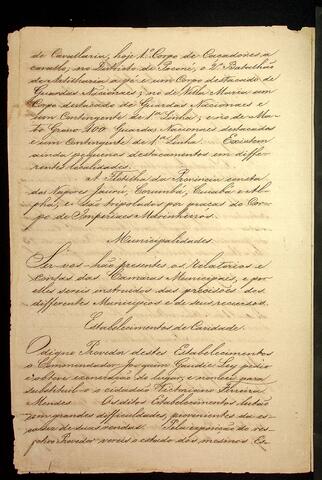 de Cavallaria, hoje 1º Corpo de Caçadores a
cavallo, no Districto de Poconé, o 2º Batalhão
de Artilharia a pé e um Corpo destacado de
Guardas Nacionaes; no de Villa Maria um
Corpo destacado de Guardas Nacionaes e
um Contingente de 1ª Linha; e no de Ma-
to Grosso 100 Guardas Nacionaes destacados
e um Contingente de 1ª Linha. Existem
ainda pequenos destacamentos em diffe-
rentes localidades.
A Flotilha da Provincia consta
dos Vapores Jaurú, Corumbá, Cuiabá e Al-
pha, e são tripolados por praças do Cor-
po de Imperiaes Marinheiros.
Municipalidades.
Ser-vos-hão presentes os relatorios e
contas das Camaras Municipaes, e por
elles sereis instruidos das precisões dos
differentes Municipios e de seus recursos.
Estabelecimentos de Caridade.
O digno Provedor destes Estabelecimentos
o Commendador Joaquim Gaudie Ley pedio
e obteve exoneração do lugar, e nomeei para
substituil-o o cidadão Victoriano
Mendes. Os ditos Estabelecimentos lutão
com grandes difficuldades, provenientes da es-
de suas rendas. Pela exposição do res-
Provedor vereis o estado dos mesmos Es-